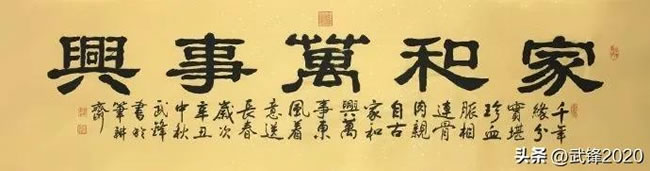 家和萬事興
千年
緣分
實堪
珍血
脈相
連骨
肉親
自古
家和
興萬
事東
風着
意送
長春
歲次
辛丑
中秋
武鋒
書於
筆耕
齋
头条 @武锋2020